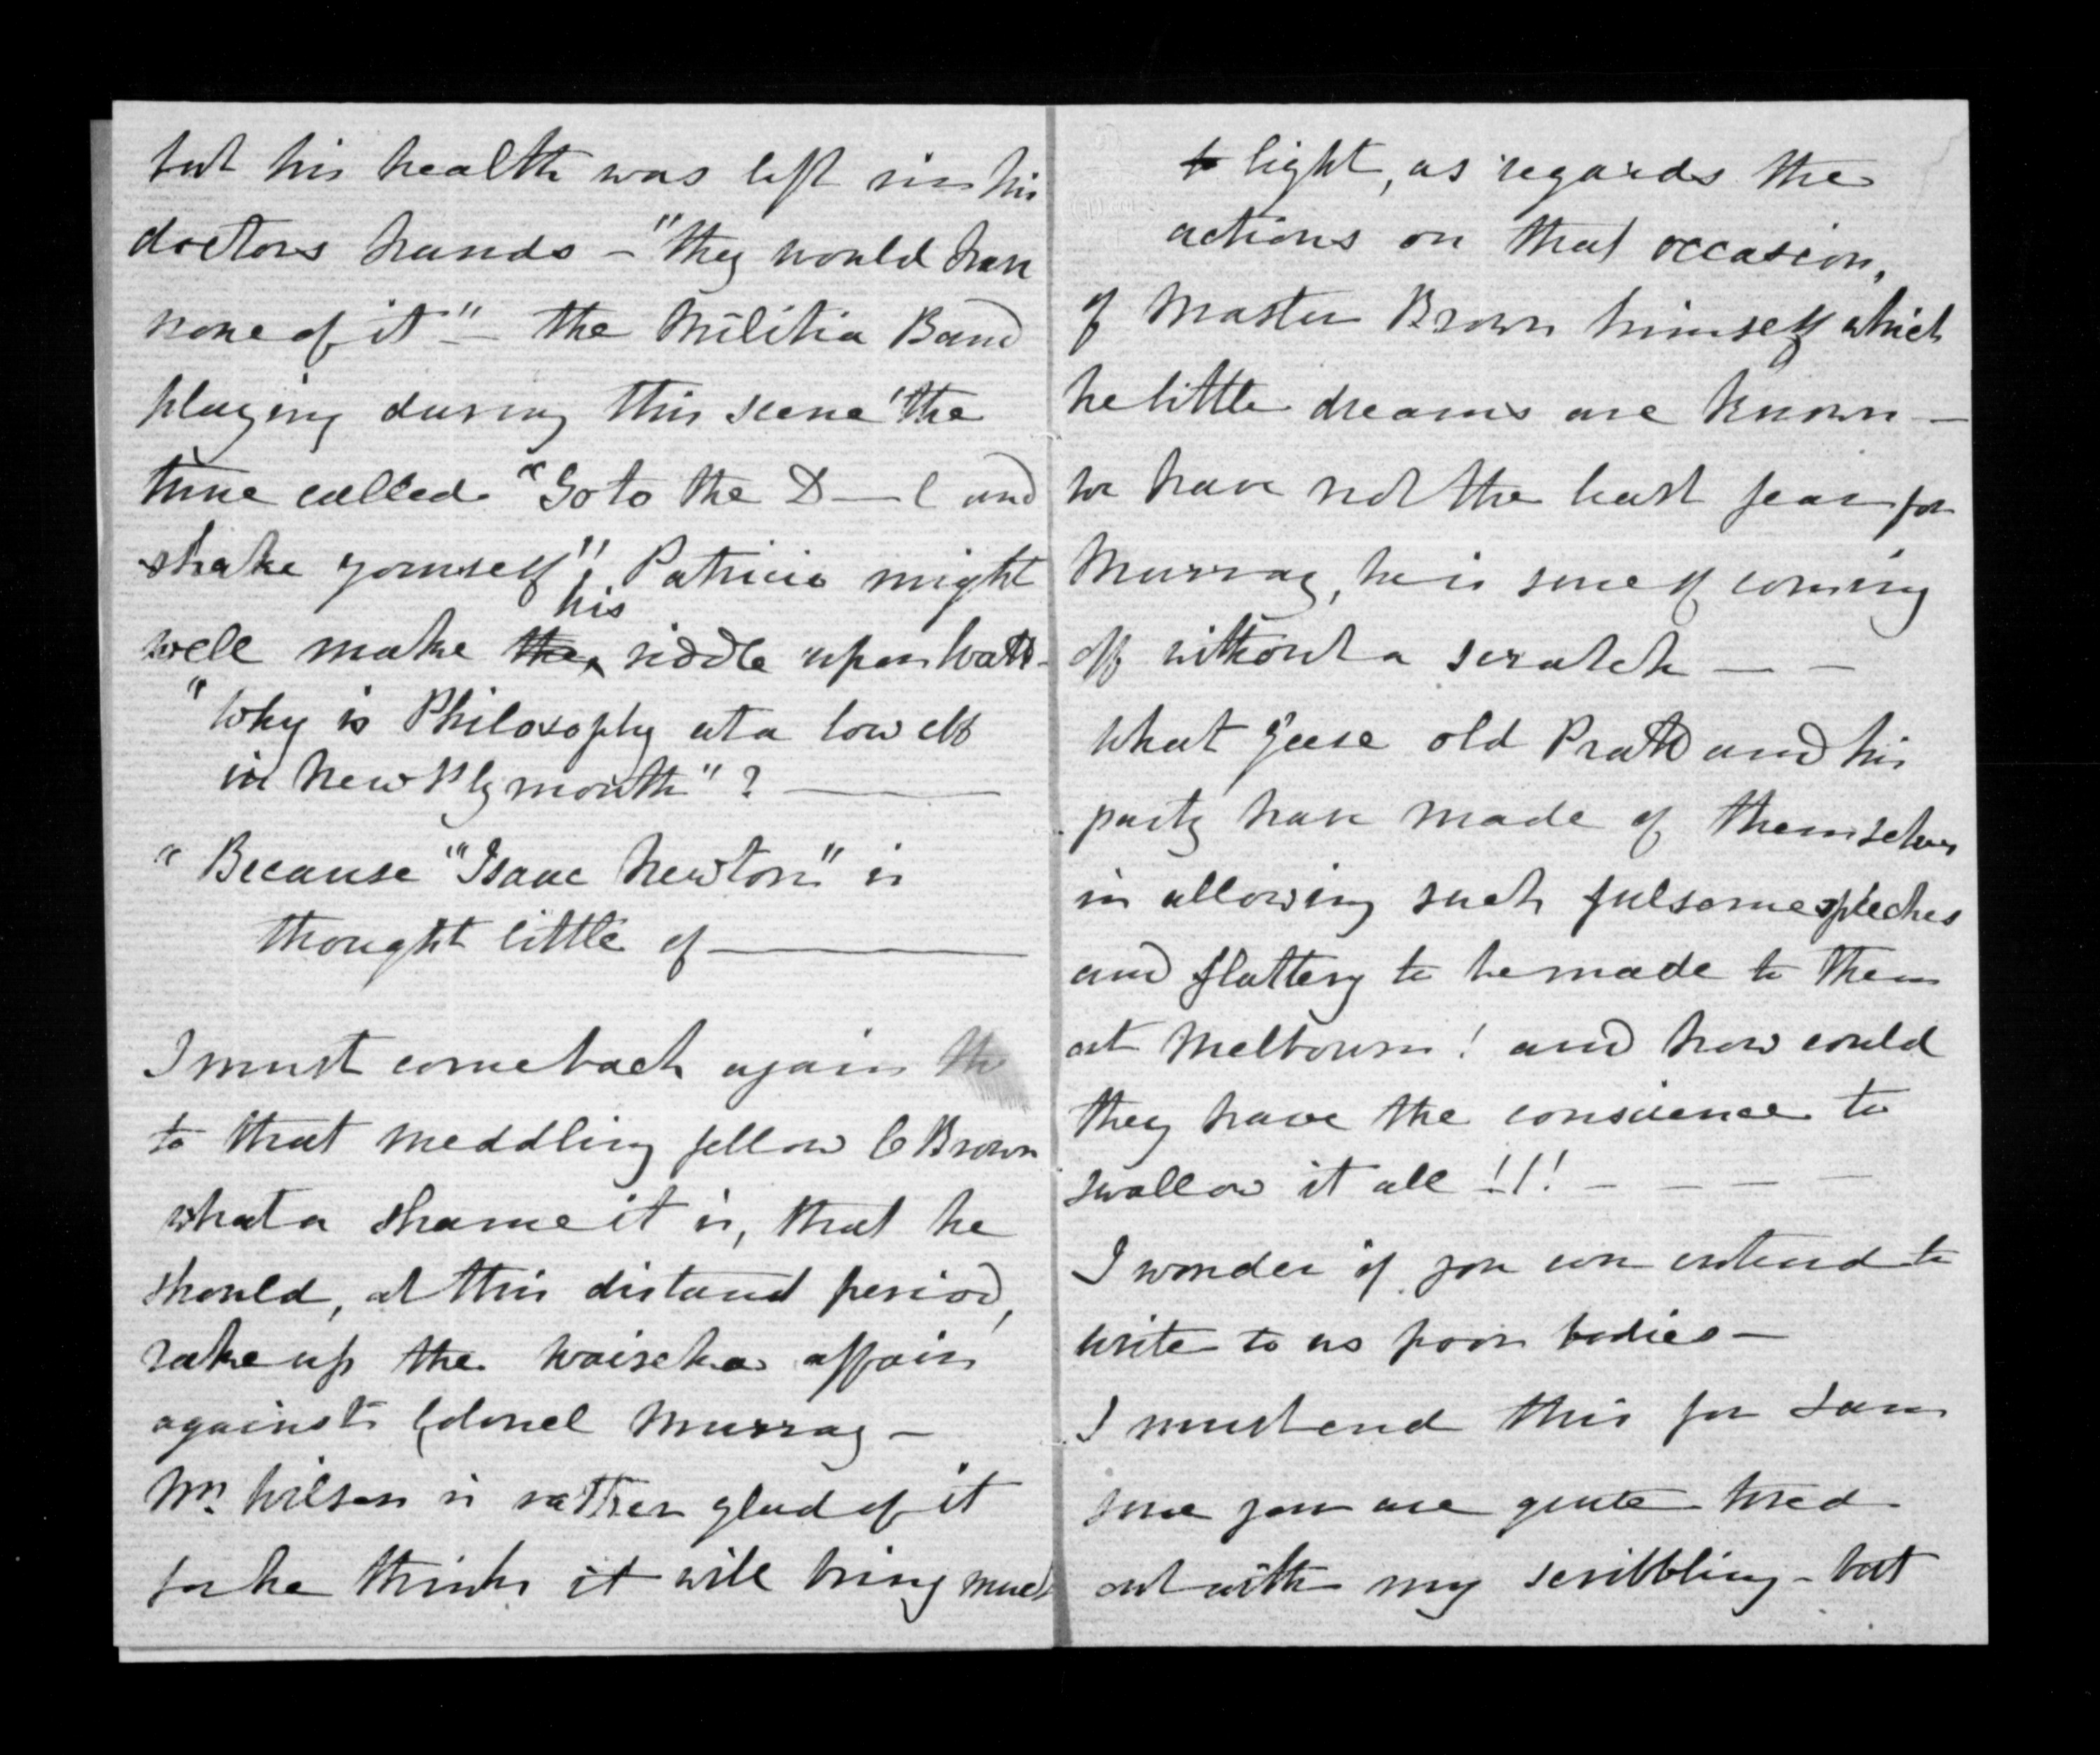 but his health was left in his
doctors hands - "they would have
none of it" - the Militia Band
playing during this scene "the
tune called "Go to the D—l and
shake yourself"! Patricio might
well make the his riddle upon Watt -
"Why is Philosophy at a low ebb
in New Plymouth"? —
"Because "Isaac Newton" is
thought little of —
I must come back again th
to that meddling fellow C Brown
what a shame it is, that he
should, at this distand period,
rake up the Waireka affair
against Colonel Murray -
Mr. Wilson is rather glad of it
for he thinks it will bring much
to light, as regards the
actions on that occasion,
of Master Brown himself which
he little dreams are known -
We have not the least fear for
Murray, he is sure of coming
off without a scratch — -
What Geese old Pratt and his
party have made of themselves
in allowing such fulsome speeches
and flattery to be made to them
at Melbourne! and how could
they have the conscience to
swallow it all !!! - - - -
I wonder if you can intend to
write to us poor bodies -
I must end this for I am
sure you are quite tired
out with my scribbling - but